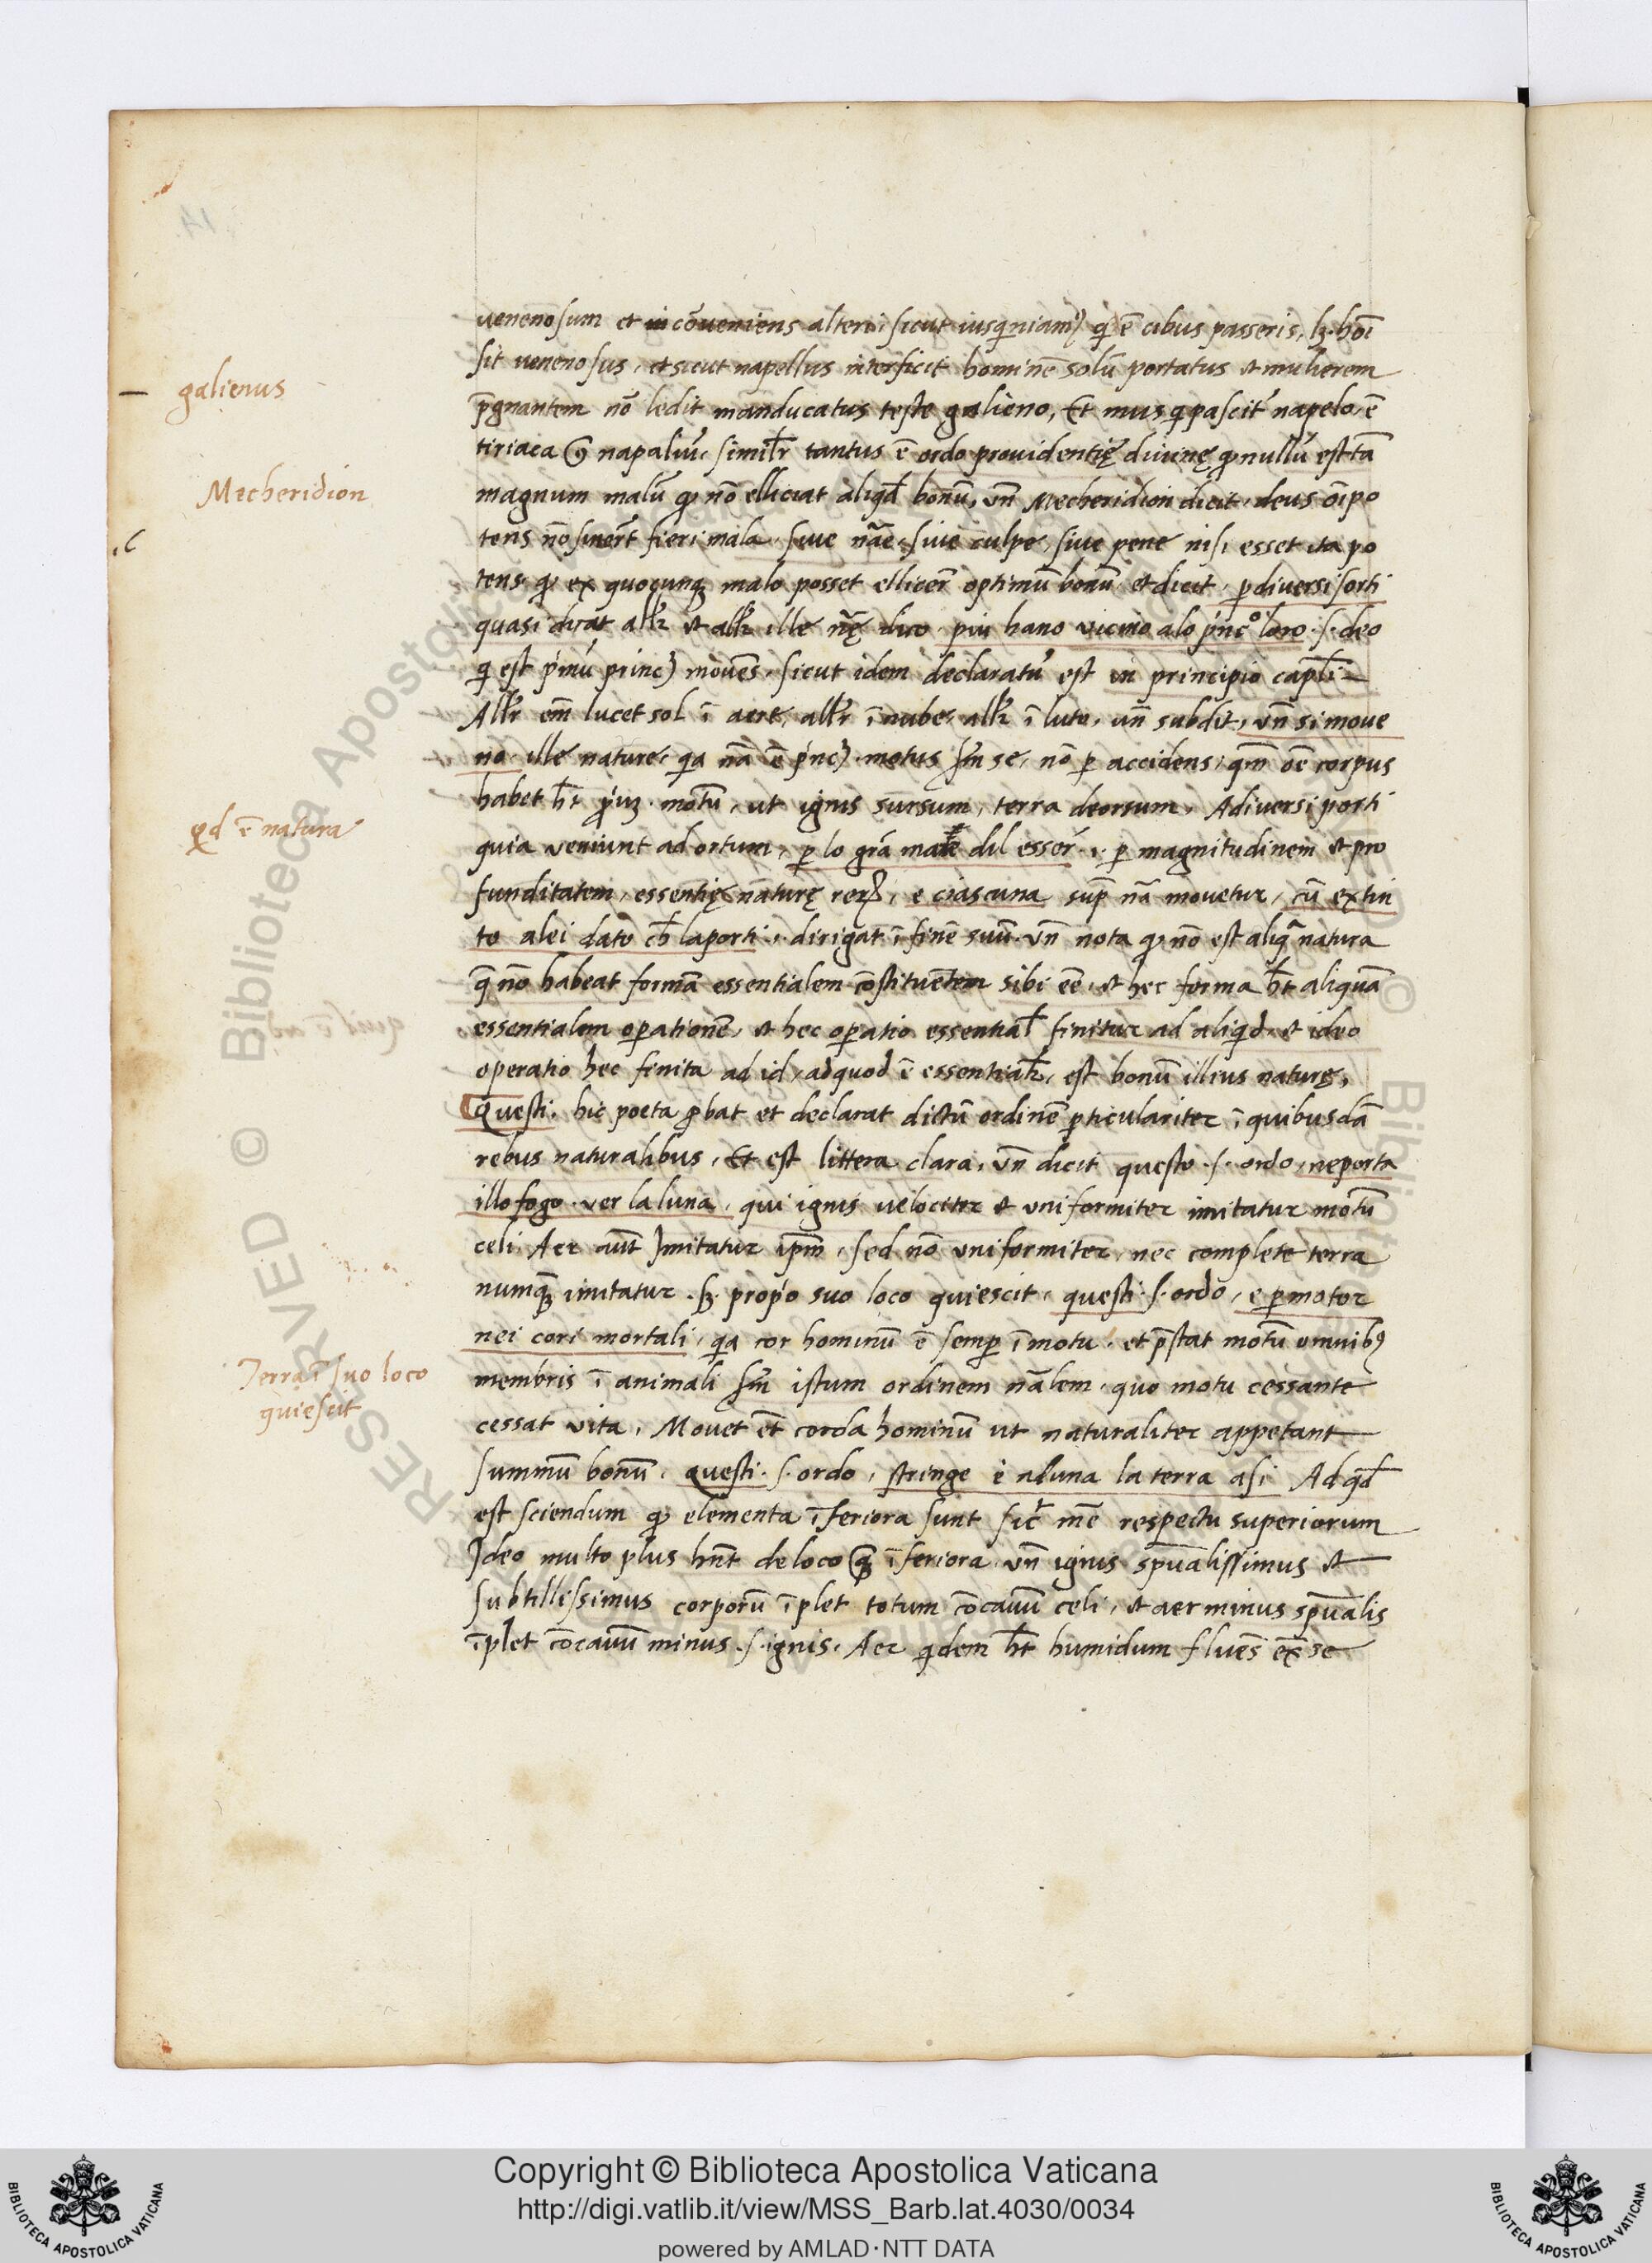 14
venenosum et incōveniens alteri sicut iusq̇niamꝰ q̇ ē cibus passeris, lꝫ hōi
sit venenosus, et sicut napellus interficit hominē solū portatus et mulierem
galienus
p̄gnantem nō ledit manducatus teste galieno, Et mus q̇ pascit᷑ napelo, ē
tiriaca ꝯ napaliū, simil̄r tantus ē ordo providentię divinę ꝙ nullū est tā
Mecheridion
magnum malū ꝙ nō elliciat aliqd̄ bonū, vn̄ Mecheridion dicit, deus oīpo
tens nō sinerēt fieri mala, sive nāe, sive culpe, sive pene nisi esset ita po
tens ꝙ ex quocunqꝫ malo posset ellicer̄ optimū bonū et dicit, ꝑ diversi sorti
quasi dicat all̄r et all̄r ille nāę dico piu hano vicino alo pͥncͦ loro .s. deo
q̇ est pͥmū princꝫ movēs, sicut idem declaratū est in principio capl̄i
All̄r em̄ lucet sol ī aere, all̄r ī nube, all̄r ī luto, vn̄ subdit, vn̄ si move
no ille nature, qa nā ē pͥncꝫ motus sm̄ se, nō ꝑ accidens, qm̄ oē corpus
habet h̄t ꝓͥuꝫ motū, ut ignis sursum, terra deorsum, A diversi porti
qd ē natura
quia veniunt ad ortum, ꝑ lo grā mare dil esser .i. ꝑ magnitudinem et pro
funditatem, essentię naturę reꝝ, e ciascuna supͣ nā movetur, cū extin
to a lei dato ch̄ la porti .i. dirigat ī finē suū vn̄ nota ꝙ nō est aliqͣ natura
q̄ nō habeat formā essentialem cōstituētem sibi eē, et hec forma h̄t aliquā
essentialem oꝑationē, et hec oꝑatio essential̄ finitur ad aliqͥd et ideo
operatio hec finita ad id, ad quod ē essential̄r, est bonū illius naturę,
Questi. hic poeta ꝓbat et declarat dictū ordinē ꝑticulariter, ī quibusdā
rebus naturalibus, Et est littera clara, vn̄ dicit questo .s. ordo, ne porta
illo fogo ver la luna, qui ignis velociter et uniformiter imitatur motū
celi, Aer aūt Imitatur ipm̄, sed nō uniformiter, nec complete terra
numqꝫ imitatur . sꝫ propͥo suo loco quiescit, questi .s. ordo, e ꝑmotor
nei cori mortali, qa cor hominū ē semꝑ ī motu, et p̄stat motū omnibꝰ
Terra ī suo loco
quiescit
membris ī animali sm̄ istum ordinem nālem, quo motu cessante
cessat vita, Movet et̄ corda hominū ut naturaliter appetant
summū bonū, questi .s. ordo, stringe e aluna la terra a si Ad qd̄
est sciendum ꝙ elementa īferiora sunt sic̄ mē respectu superiorum
Ideo multo plus hn̄t de loco qꝫ īferiora vn̄ ignis spūalissimus et
subtillissimus corporū īplet totum cōcavū celi, et aer minus spūalis
īplet cōcavū minus .s. ignis, Aer qͥdem h̄t humidum fluēs ex se
Copyright © Biblioteca Apostolica Vaticana
http://digi.vatlib.it/view/MSS_Barb.lat.4030/0034
powered by AMLAD·NTT DATA
BIBLIOTECA APOSTOLICA VATICANA
BIBLIOTECA APOSTOLICA VATICANA